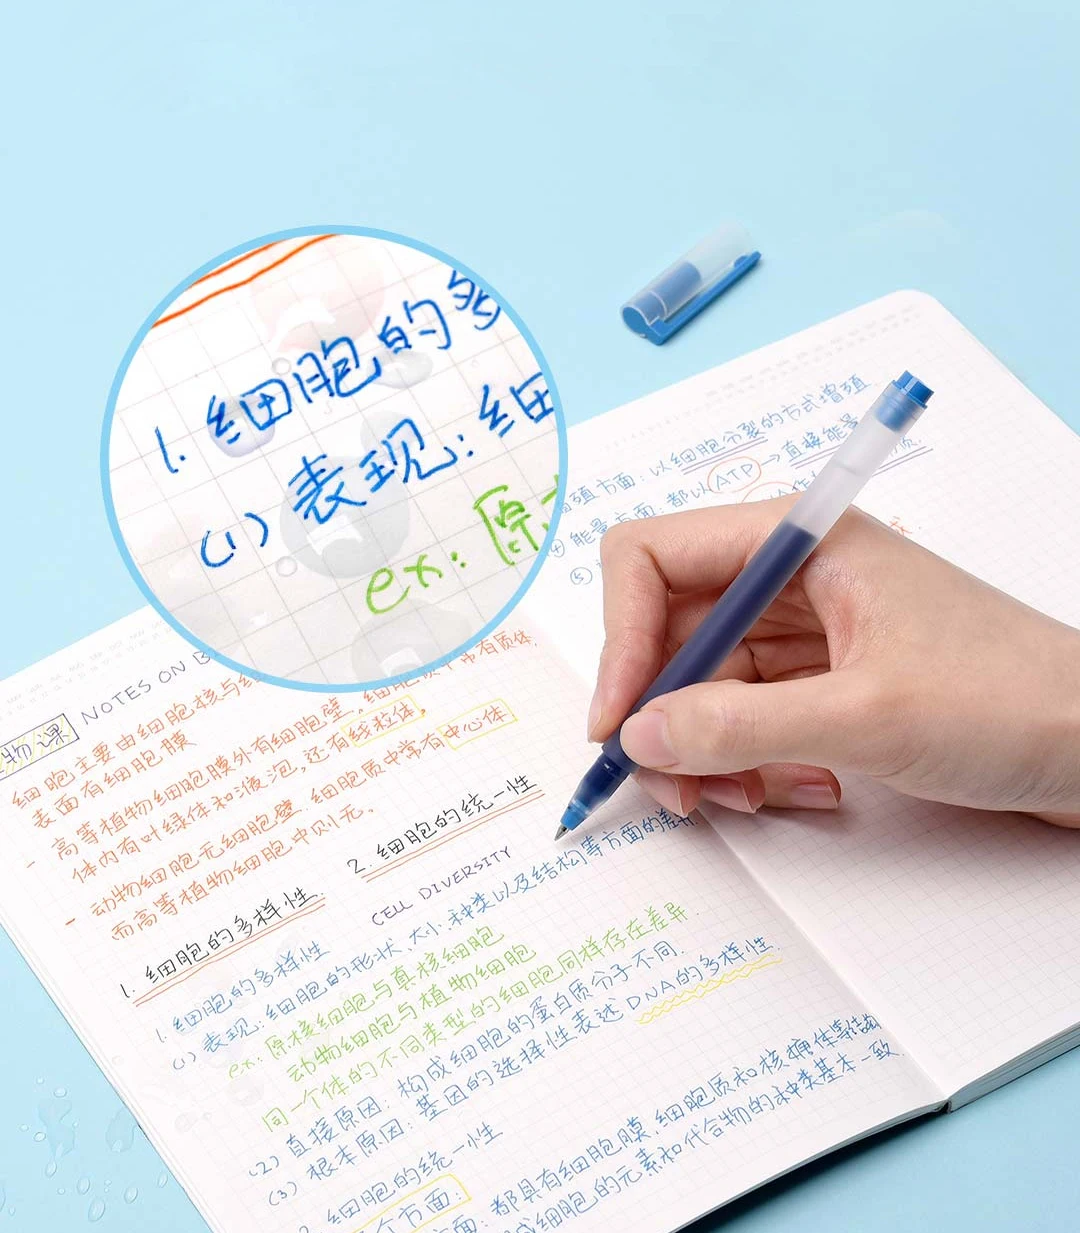 1. 细胞的多
(1) 表现: 细
ex: 原
物课 NOTES ON B
细胞主要由细胞核与
表面有细胞膜
- 高等植物细胞膜外有细胞壁。细胞质中常有质体,
体内有叶绿体和液泡,还有线粒体。
- 动物细胞无细胞壁.细胞质中常有中心体
而高等植物细胞中则无。
1. 细胞的多样性:
2. 细胞的统一性
CELL DIVERSITY
1. 细胞的多样性
(1) 表现: 细胞的形状、大小、种类以及结构等方面的差异
ex: 原核细胞与真核细胞
动物细胞与植物细胞
同一个体的不同类型的细胞同样存在差异.
(2) 直接原因: 构成细胞的蛋白质分子不同.
(3) 根本原因: 基因的选择性表述DNA的多样性.
细胞的统一性
个方面:
方面: 都具有细胞膜 细胞质和核
成细胞的元素和化合物的种类基本一致.
殖方面: 以细胞分裂的方式增殖
④ 能量方面: 都以ATP→直接能量
⑤